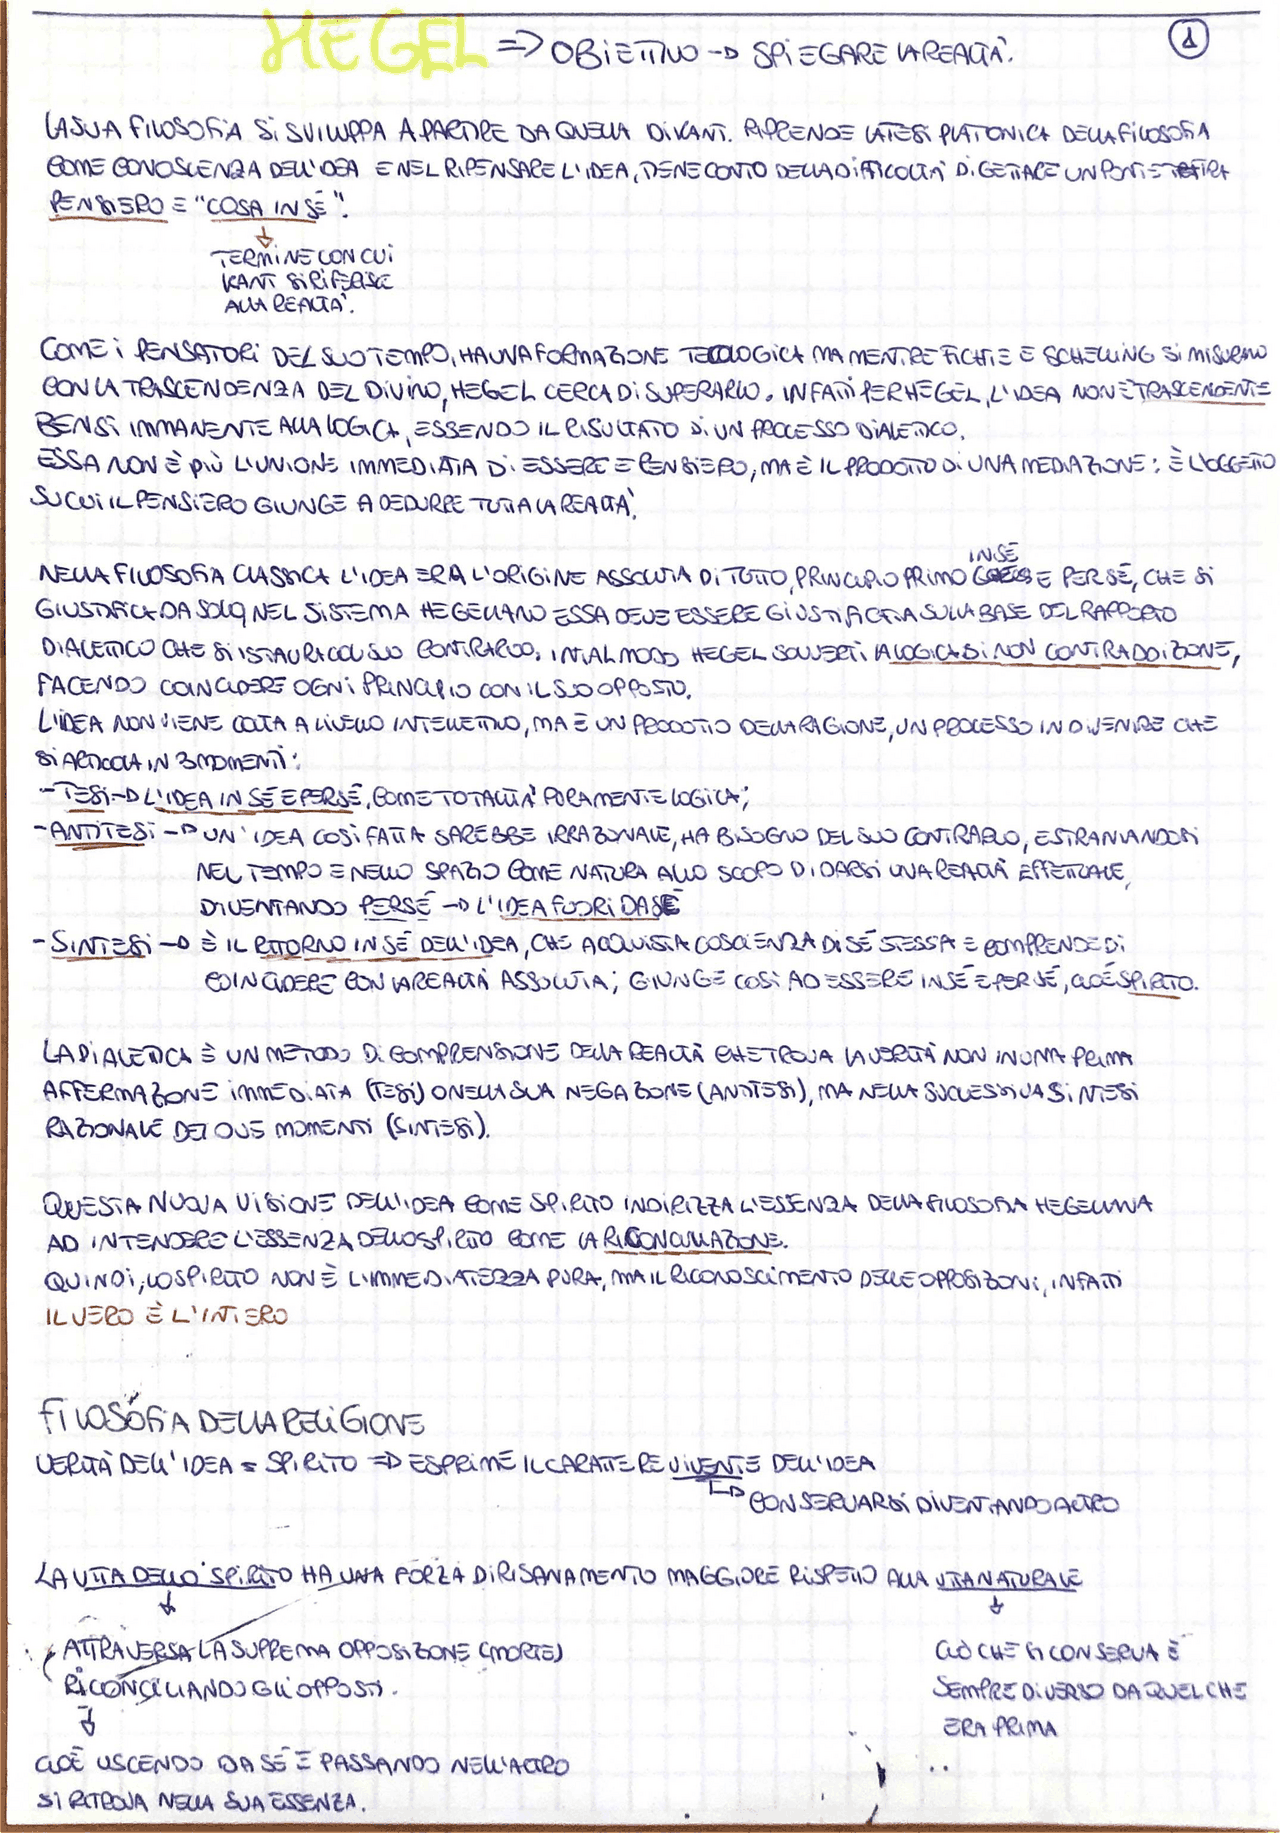 HEGEL => OBIETTIVO -> SPIEGARE LA REALTÀ.
1
LA SUA FILOSOFIA SI SVILUPPA A PARTIRE DA QUELLA DI KANT. RIPRENDE LA TESI PLATONICA DELLA FILOSOFIA
COME CONOSCENZA DELL'IDEA E NEL RIPENSARE L'IDEA, TIENE CONTO DELLA DIFFICOLTÀ DI GETTARE UN PONTE FRA
PENSIERO E "COSA IN SÉ".
TERMINE CON CUI
KANT SI RIFERISCE
ALLA REALTÀ.
COME I PENSATORI DEL SUO TEMPO, HA UNA FORMAZIONE TEOLOGICA MA MENTRE FICHTE E SCHELLING SI MISURANO
CON LA TRASCENDENZA DEL DIVINO, HEGEL CERCA DI SUPERARLO. INFATTI PER HEGEL, L'IDEA NON È TRASCENDENTE
BENSÌ IMMANENTE ALLA LOGICA, ESSENDO IL RISULTATO DI UN PROCESSO DIALETICO.
ESSA NON È PIÙ L'UNIONE IMMEDIATA DI ESSERE E PENSIERO, MA È IL PRODOTTO DI UNA MEDIAZIONE: È L'OGGETTO
SU CUI IL PENSIERO GIUNGE A DEDURRE TUTTA LA REALTÀ.
NELLA FILOSOFIA CLASSICA L'IDEA ERA L'ORIGINE ASSOLUTA DI TUTTO, PRINCIPIO PRIMO IN SÉ E PER SÉ, CHE SI
GIUSTIFICA DA SOLO, NEL SISTEMA HEGELIANO ESSA DEVE ESSERE GIUSTIFICATA SULLA BASE DEL RAPPORTO
DIALETICO CHE SI ISTAURA COL SUO CONTRARIO. IN TAL MODO HEGEL SOVVERTÌ LA LOGICA DI NON CONTRADDIZIONE,
FACENDO COINCIDERE OGNI PRINCIPIO CON IL SUO OPPOSTO.
L'IDEA NON VIENE COLTA A LIVELLO INTELLETTIVO, MA È UN PRODOTTO DELLA RAGIONE, UN PROCESSO IN DIVENIRE CHE
SI ARTICOLA IN 3 MOMENTI:
- TESI -> L'IDEA IN SÉ E PER SÉ, COME TOTALITÀ PURAMENTE LOGICA;
- ANTITESI -> UN'IDEA COSÌ FATTA SAREBBE IRRAZIONALE, HA BISOGNO DEL SUO CONTRARIO, ESTRANIANDOSI
NEL TEMPO E NELLO SPAZIO COME NATURA ALLO SCOPO DI DARSI UNA REALTÀ EFFETTUALE,
DIVENTANDO PER SÉ -> L'IDEA FUORI DA SÉ
- SINTESI -> È IL RITORNO IN SÉ DELL'IDEA, CHE ACQUISTA COSCIENZA DI SÉ STESSA E COMPRENDE DI
COINCIDERE CON LA REALTÀ ASSOLUTA; GIUNGE COSÌ AD ESSERE IN SÉ E PER SÉ, CIOÈ SPIRITO.
LA DIALETICA È UN METODO DI COMPRENSIONE DELLA REALTÀ CHE TROVA LA VERITÀ NON IN UNA PRIMA
AFFERMAZIONE IMMEDIATA (TESI) O NELLA SUA NEGAZIONE (ANTITESI), MA NELLA SUCCESSIVA SINTESI
RAZIONALE DEI DUE MOMENTI (SINTESI).
QUESTA NUOVA VISIONE DELL'IDEA COME SPIRITO INDIRIZZA L'ESSENZA DELLA FILOSOFIA HEGELIANA
AD INTENDERE L'ESSENZA DELLO SPIRITO COME LA RICONCILIAZIONE.
QUINDI, LO SPIRITO NON È L'IMMEDIATEZZA PURA, MA IL RICONOSCIMENTO DELLE OPPOSIZIONI, INFATTI
IL VERO È L'INTIERO
FILOSOFIA DELLA RELIGIONE
VERITÀ DELL'IDEA = SPIRITO => ESPRIME IL CARATTERE VIVENTE DELL'IDEA
-> CONSERVARSI DIVENTANDO ALTRO
LA VITA DELLO SPIRITO HA UNA FORZA DI RISANAMENTO MAGGIORE RISPETTO ALLA VITA NATURALE
ATTRAVERSA LA SUPREMA OPPOSIZIONE (MORTE)
RICONCILIANDO GLI OPPOSTI.
CIOÈ USCENDO DA SÉ E PASSANDO NELL'ALTRO
SI RITROVA NELLA SUA ESSENZA.
CIÒ CHE SI CONSERVA È
SEMPRE DIVERSO DA QUEL CHE
ERA PRIMA